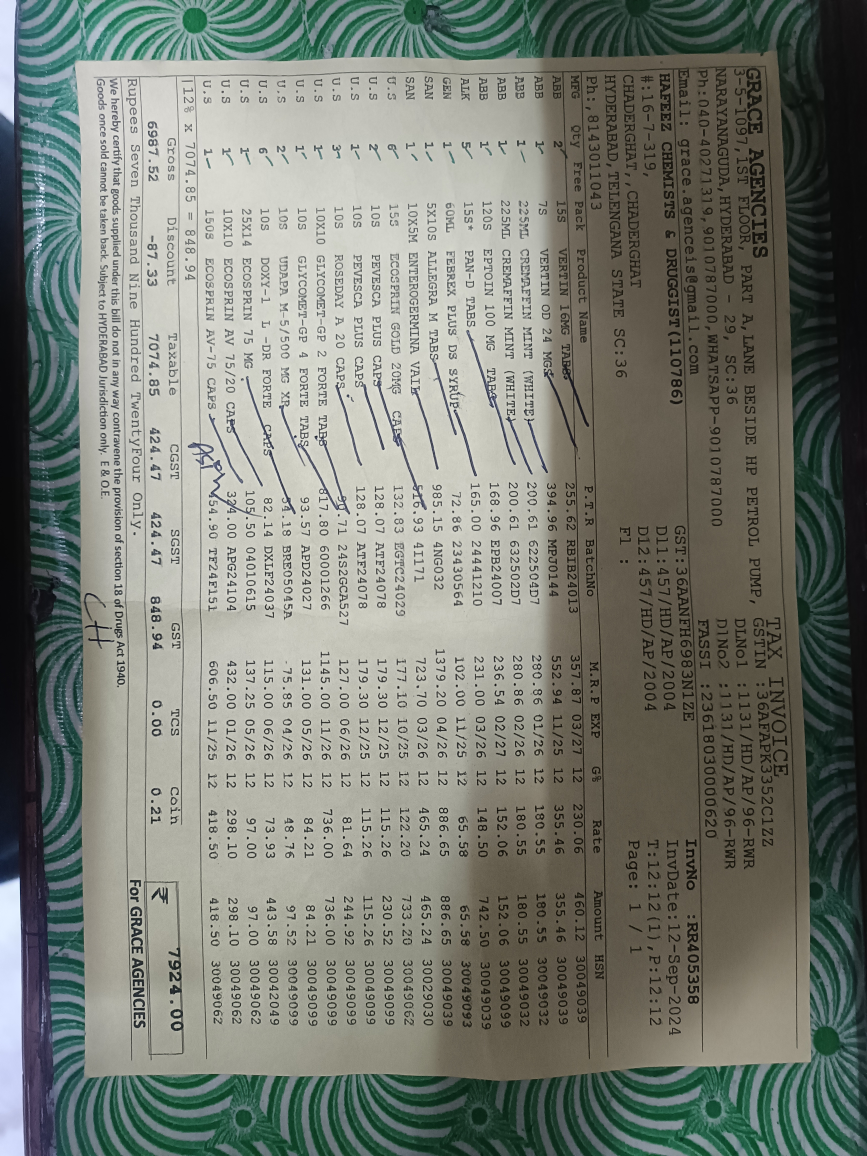 GRACE AGENCIES
3-5-1097,1ST FLOOR, PART A,LANE BESIDE HP PETROL PUMP,
NARAYANAGUDA,HYDERABAD - 29, SC:36
Ph:040-40271319,9010787000,WHATSAPP-9010787000
Email: grace.agenceis@gmail.com
TAX INVOICE
GSTIN :36AFAPK3352C1ZZ
DLNo1 :1131/HD/AP/96-RWR
DlNo2 :1131/HD/AP/96-RWR
FASSI :23618030000620
HAFEEZ CHEMISTS & DRUGGIST(110786)
#:16-7-319,
CHADERGHAT,,CHADERGHAT
HYDERABAD,TELENGANA STATE SC:36
Ph:,8143011043
GST:36AANFH6983N1ZE
D11:457/HD/AP/2004
D12:457/HD/AP/2004
F1 :
InvNo :RR405358
InvDate:12-Sep-2024
T:12:12(1),P:12:12
Page: 1 / 1
MFG Qty Free Pack Product Name P.T.R BatchNo M.R.P EXP G% Rate Amount HSN
ABB 2 15S VERTIN 16MG TABS 255.62 RBIB24013 357.87 03/27 12 230.06 460.12 30049039
ABB 1 7S VERTIN OD 24 MGS 394.96 MPJ0144 552.94 11/25 12 355.46 355.46 30049039
ABB 1 225ML CREMAFFIN MINT (WHITE) 200.61 622504D7 280.86 01/26 12 180.55 180.55 30049032
ABB 1 225ML CREMAFFIN MINT (WHITE) 200.61 632502D7 280.86 02/26 12 180.55 180.55 30049032
ABB 1 120S EPTOIN 100 MG TABS 168.96 EPB24007 236.54 02/27 12 152.06 152.06 30049099
ALK 5 15S* PAN-D TABS 165.00 24441210 231.00 03/26 12 148.50 742.50 30049039
GEN 1 60ML FEBREX PLUS DS SYRUP 72.86 23430564 102.00 11/25 12 65.58 65.58 30049093
SAN 1 5X10S ALLEGRA M TABS 985.15 4NG032 1379.20 04/26 12 886.65 886.65 30049039
SAN 1 10X5M ENTEROGERMINA VAIL 516.93 4I171 723.70 03/26 12 465.24 465.24 30029030
U.S 6 15S ECOSPRIN GOLD 20MG CAPS 132.83 EGTC24029 177.10 10/25 12 122.20 733.20 30049062
U.S 2 10S PEVESCA PLUS CAPS 128.07 ATF24078 179.30 12/25 12 115.26 230.52 30049099
U.S 1 10S PEVESCA PLUS CAPS 128.07 ATF24078 179.30 12/25 12 115.26 115.26 30049099
U.S 3 10S ROSEDAY A 20 CAPS 90.71 24S2GCA527 127.00 06/26 12 81.64 244.92 30049099
U.S 1 10X10 GLYCOMET-GP 2 FORTE TABS 817.80 60001266 1145.00 11/26 12 736.00 736.00 30049099
U.S 1 10S GLYCOMET-GP 4 FORTE TABS 93.57 APD24027 131.00 05/26 12 84.21 84.21 30049099
U.S 2 10S UDAPA M-5/500 MG XR 54.18 BRE05045A 75.85 04/26 12 48.76 97.52 30049099
U.S 6 10S DOXY-1 L -DR FORTE CAPS 82.14 DXLF24037 115.00 06/26 12 73.93 443.58 30042049
U.S 1 25X14 ECOSPRIN 75 MG 105.50 04010615 137.25 05/26 12 97.00 97.00 30049062
U.S 1 10X10 ECOSPRIN AV 75/20 CAPS 324.00 APG24104 432.00 01/26 12 298.10 298.10 30049062
U.S 1 150S ECOSPRIN AV-75 CAPS 454.90 TF24F151 606.50 11/25 12 418.50 418.50 30049062
|12% x 7074.85 = 848.94
Gross Discount Taxable CGST SGST GST TCS Coin
6987.52 -87.33 7074.85 424.47 424.47 848.94 0.00 0.21 ₹ 7924.00
Rupees Seven Thousand Nine Hundred TwentyFour Only.
For GRACE AGENCIES
We hereby certify that goods supplied under this bill do not in any way contravene the provision of section 18 of Drugs Act 1940.
Goods once sold cannot be taken back. Subject to HYDERABAD Jurisdiction only. E & O.E.
CH